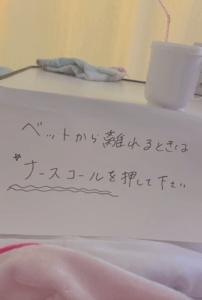 ベットから離れるときは
*ナースコールを押して下さい